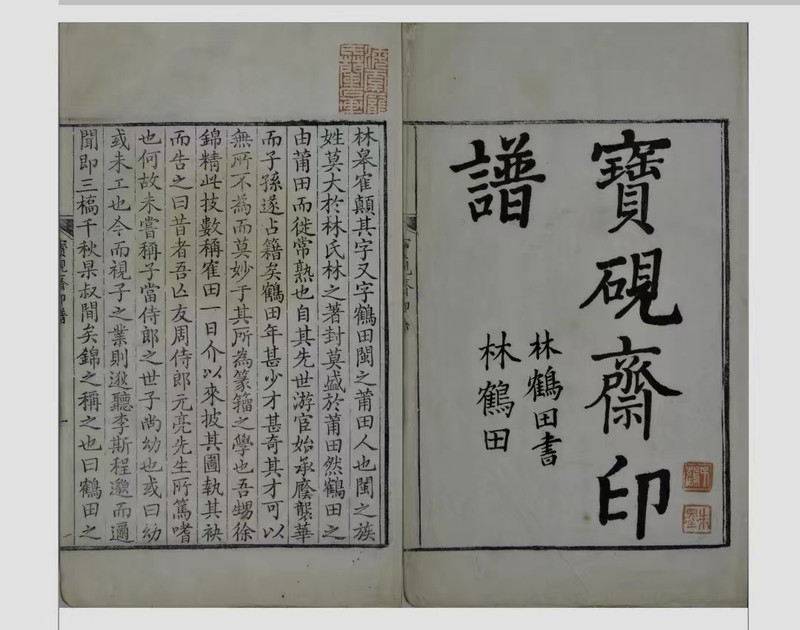 寶硯齋印
譜
林鶴田書
林鶴田
林皋寉顛其字又字鶴田閩之莆田人也閩之族
姓莫大於林氏林之著封莫盛於莆田然鶴田之
由莆田而徙常熟也自其先世游宦始承廕襲華
而子孫遂占籍矣鶴田年甚少才甚奇其才可以
無所不為而莫妙于其所為篆籀之學也吾甥徐
錦精此技數稱寉田一日介以來披其圖執其袂
而告之曰昔者吾亾友周侍郎元亮先生所篤嗜
也何故未嘗稱子當侍郎之世子尚幼也或曰幼
或未工也今而視子之業則遜聽李斯程邈而邇
聞即三橋千秋杲叔間矣錦之稱之也曰鶴田之
寶硯齋印譜
一